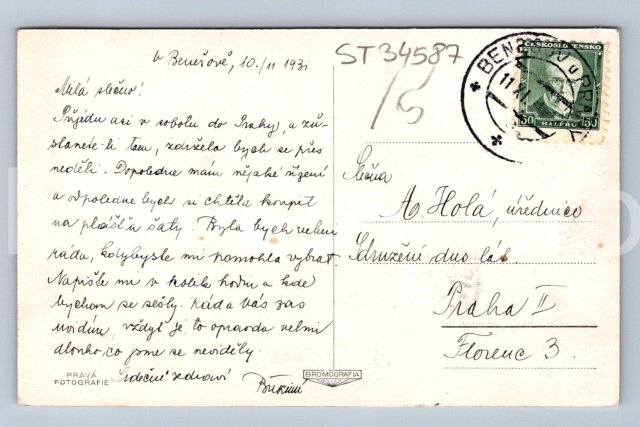 v Benešově, 10./11 193
ST 34587
Milá slečno!
Přijedu asi v sobotu do Prahy, a zů-
stanete-li tam, zdržela bych se přes
neděli. Dopoledne mám nějaké řízení
a odpoledne bych si chtěla koupit
na plášť a šaty. Byla bych velmi
ráda, kdybyste mi pomohla vybrat.
Napište mi v kolik hodin a kde
bychom se sešly. Ráda Vás zas
uvidím, vždyť je to opravdu velmi
dlouho, co jsme se neviděly.
Srdečně zdraví
PRAVÁ
FOTOGRAFIE
BROMOGRAFIA
ČESKOSLOVENSKO
50 HALÉŘŮ 50
BENEŠOV U PRAHY
Slečna
A Holá, úřednice
Sdružení
Praha II
Florenc 3.